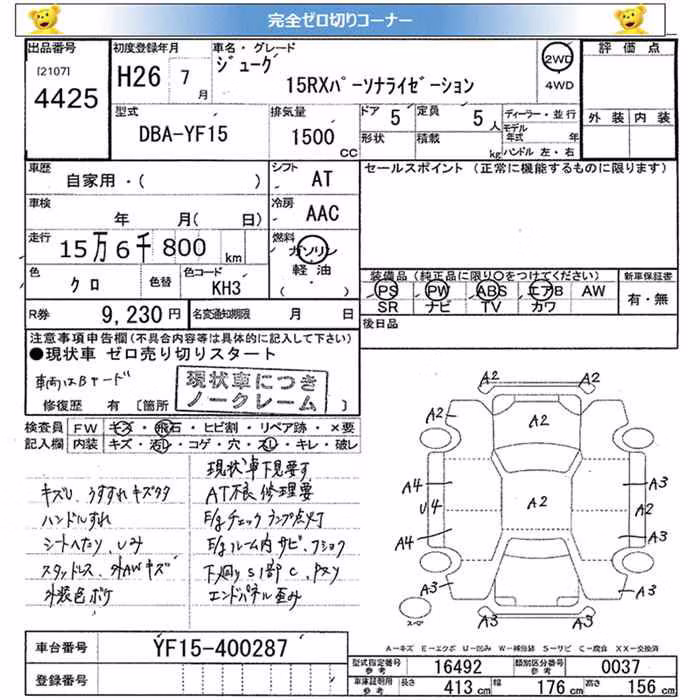 完全ゼロ切りコーナー
出品番号
[2107]
4425
初度登録年月
H26 7月
車名・グレード
ジューク
15RXパーソナライゼーション
2WD
4WD
評価点
外装 内装
型式
DBA-YF15
排気量
1500 CC
ドア 5
定員 5 人
形状
積載 kg
ディーラー・並行
モデル年式 年
ハンドル 左・右
車歴
自家用・( )
シフト AT
セールスポイント(正常に機能するものに限ります)
車検
年 月( 日)
冷房 AAC
走行
15万6千800 km
燃料
ガソリン
軽油
( ・ )
色
クロ
色替
色コード
KH3
装備品(純正品に限り○をつけてください)
PS PW ABS エアB AW
SR ナビ TV カワ
新車保証書
有・無
R券 9,230円
名変通知期限 月 日
後日品
注意事項申告欄(不具合内容等は具体的に記入して下さい)
●現状車 ゼロ売り切りスタート
車両はBヤード
現状車につき
ノークレーム
修復歴 有 [箇所
検査員
記入欄
FW キズ・飛石・ヒビ割・リペア跡・×要
内装 キズ・汚レ・コゲ・穴・スレ・キレ・破レ
現状車下見要す
キズU、うすすれキズクタ
AT不良修理要
ハンドルすれ
E/gチェックランプ点灯
シートへたり、Uみ
E/gルーム内サビ、フショク
スタッドレス、外AWキズ
下廻りS1部C、PXメリ
外装色ボケ
エンドパネル歪み
A2 A2
A2 A2 A2
A4 A3
U4 A2
A4 A3
A3 A3
A3 A3
スペア
A-キズ E-エクボ U-凹み W-補修跡 S-サビ C-腐食 XX-交換済
車台番号 YF15-400287
登録番号
型式指定番号
参考
16492
類別区分番号
参考
0037
車庫証明用
参考
長さ 413 cm 幅 176 cm 高さ 156 cm